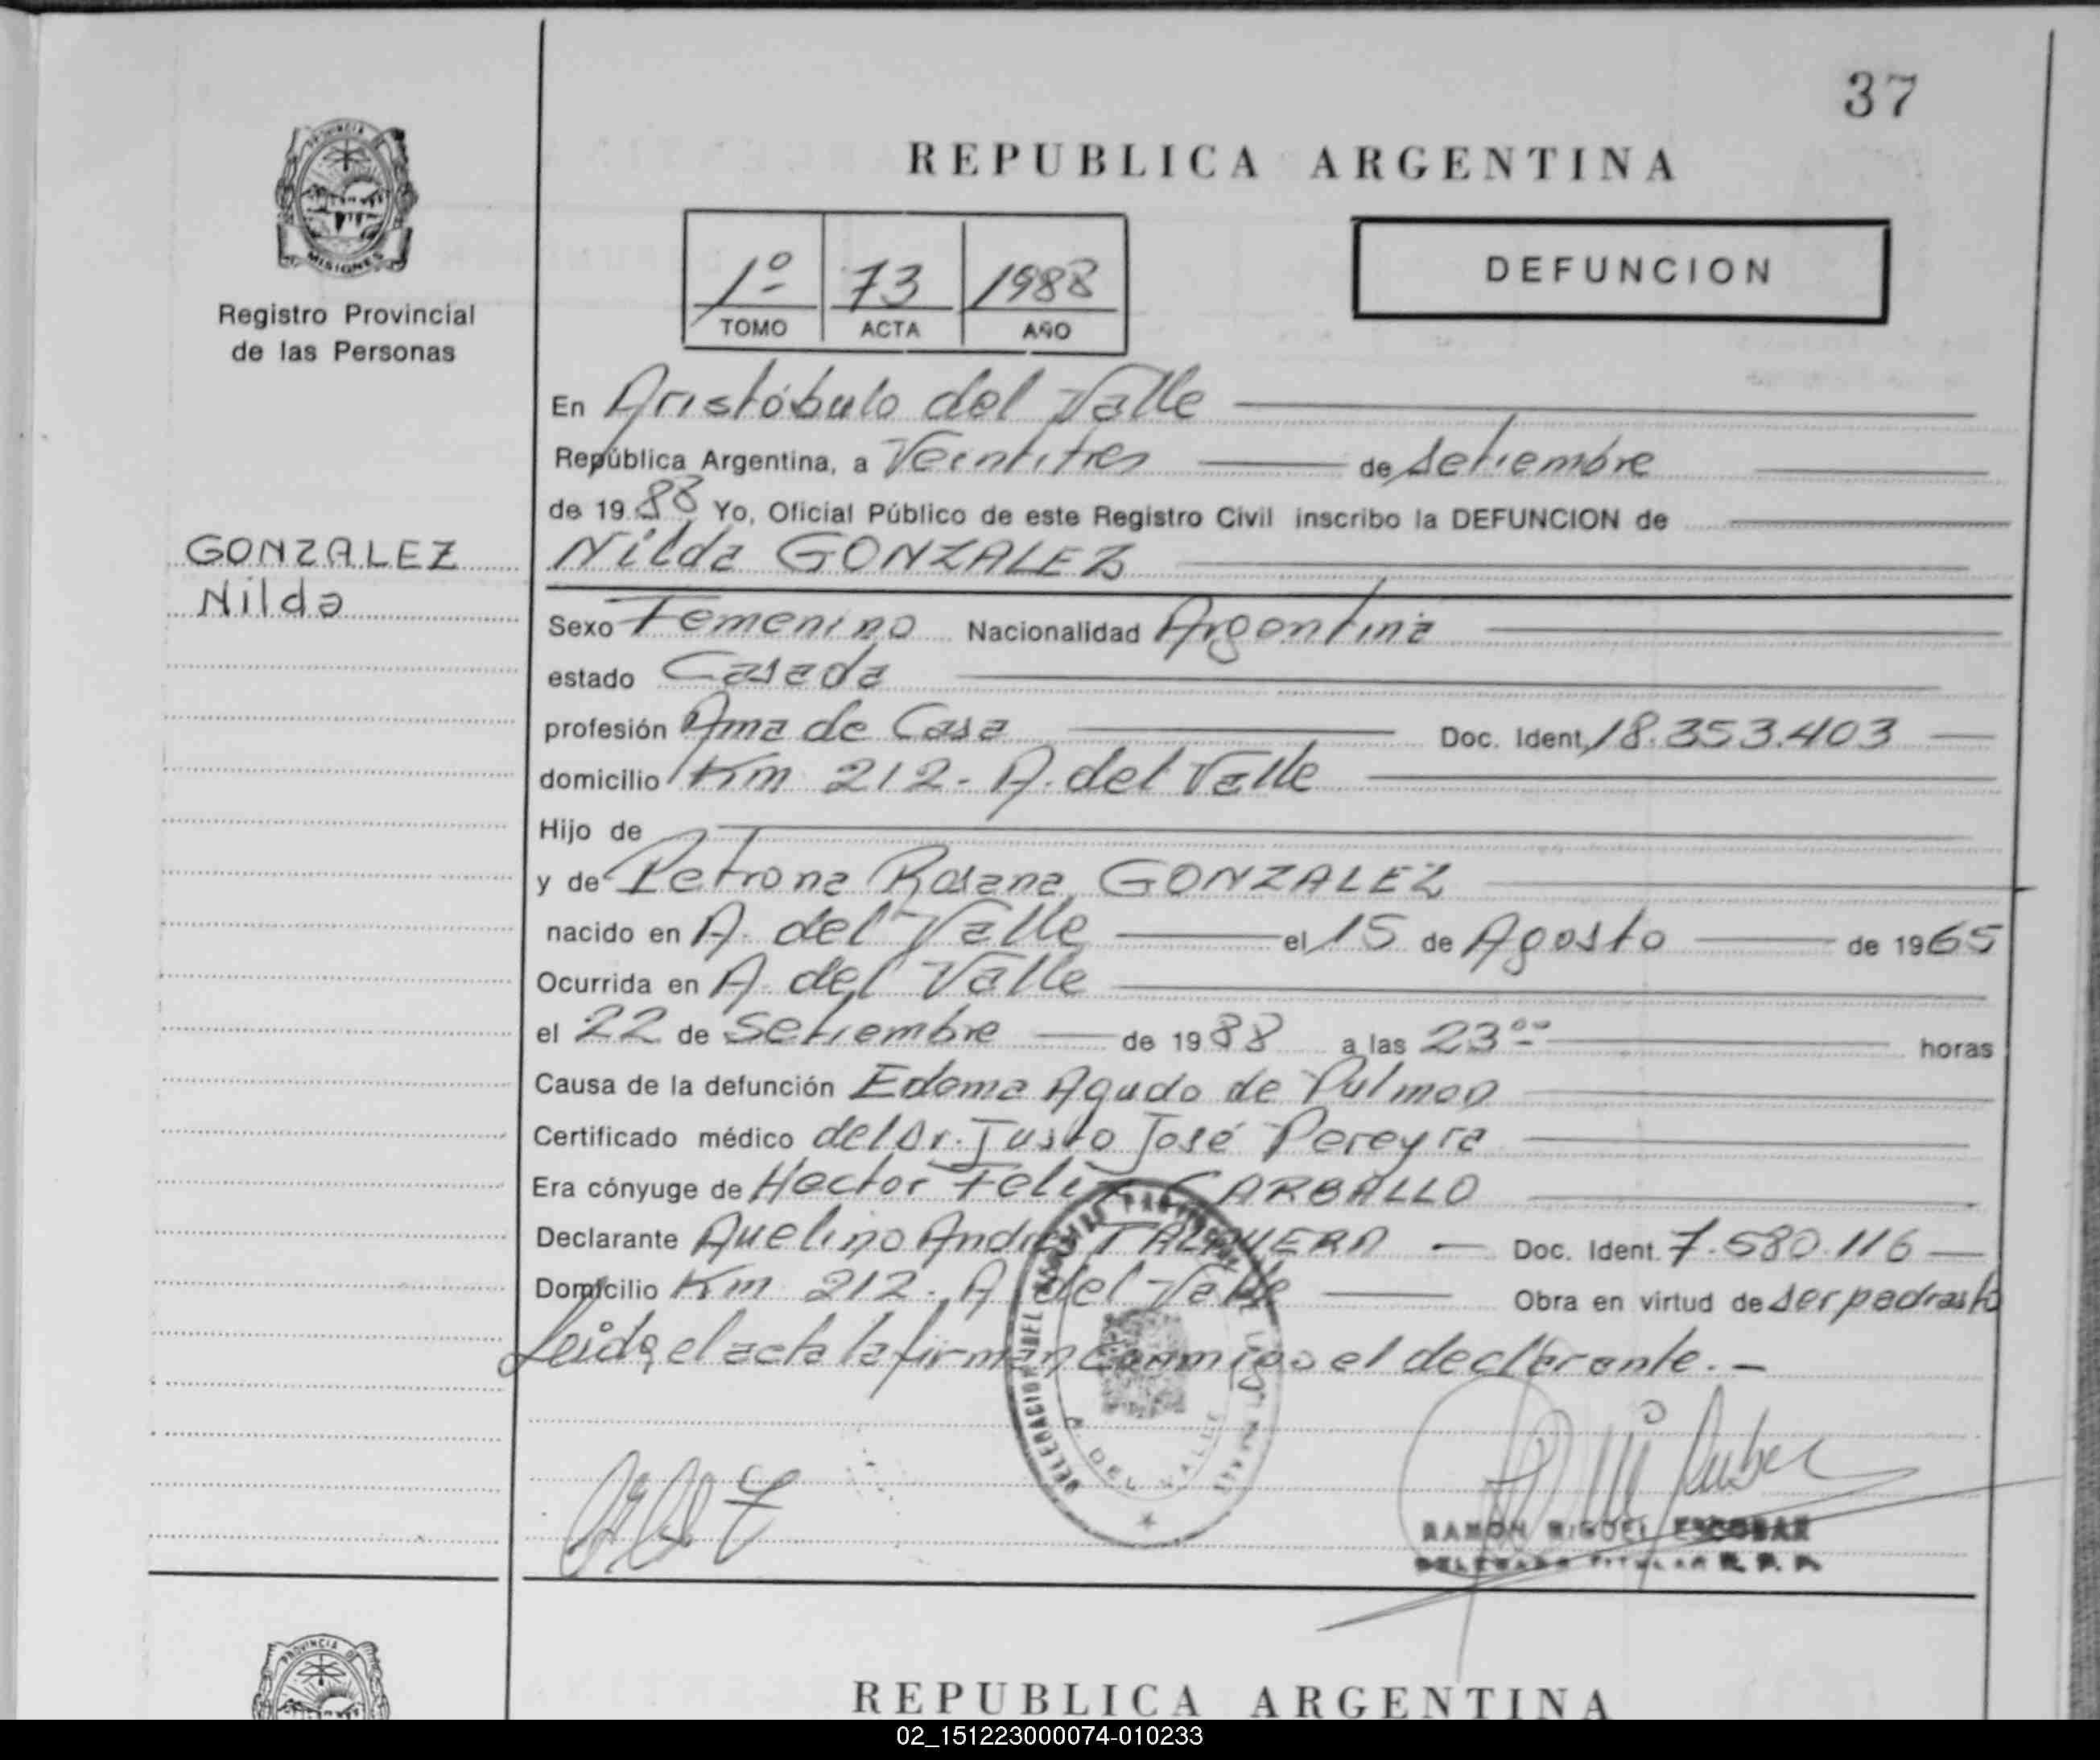 37
PROVINCIA DE
MISIONES
Registro Provincial
de las Personas
REPUBLICA ARGENTINA
1º 73 1988
TOMO ACTA AÑO
DEFUNCION
En Aristóbulo del Valle
República Argentina, a Veintitres de setiembre
de 1988 Yo, Oficial Público de este Registro Civil inscribo la DEFUNCION de
GONZALEZ
Nilda
Nilda GONZALEZ
Sexo Femenino Nacionalidad Argentina
estado Casada
profesión Ama de Casa Doc. Ident. 18.353.403
domicilio Km 212 - A. del Valle
Hijo de
y de Petrona Rosana GONZALEZ
nacido en A. del Valle el 15 de Agosto de 1965
Ocurrida en A. del Valle
el 22 de Setiembre de 1988 a las 23 ºº horas
Causa de la defunción Edema Agudo de Pulmon
Certificado médico del Dr. Justo José Pereyra
Era cónyuge de Hector Felix CARBALLO
Declarante Avelino Andres Doc. Ident. 7.580.116
Domicilio Km 212 - A del Valle Obra en virtud de ser padrasto
Leida el acta la firman conmigo el declarante. -
DELEGACION DEL REGISTRO PROVINCIAL DE LAS PERSONAS
A. DEL VALLE
RAMON MIGUEL ESCOBAR
DELEGADO TITULAR R. P. P.
PROVINCIA DE
REPUBLICA ARGENTINA
02_151223000074-010233